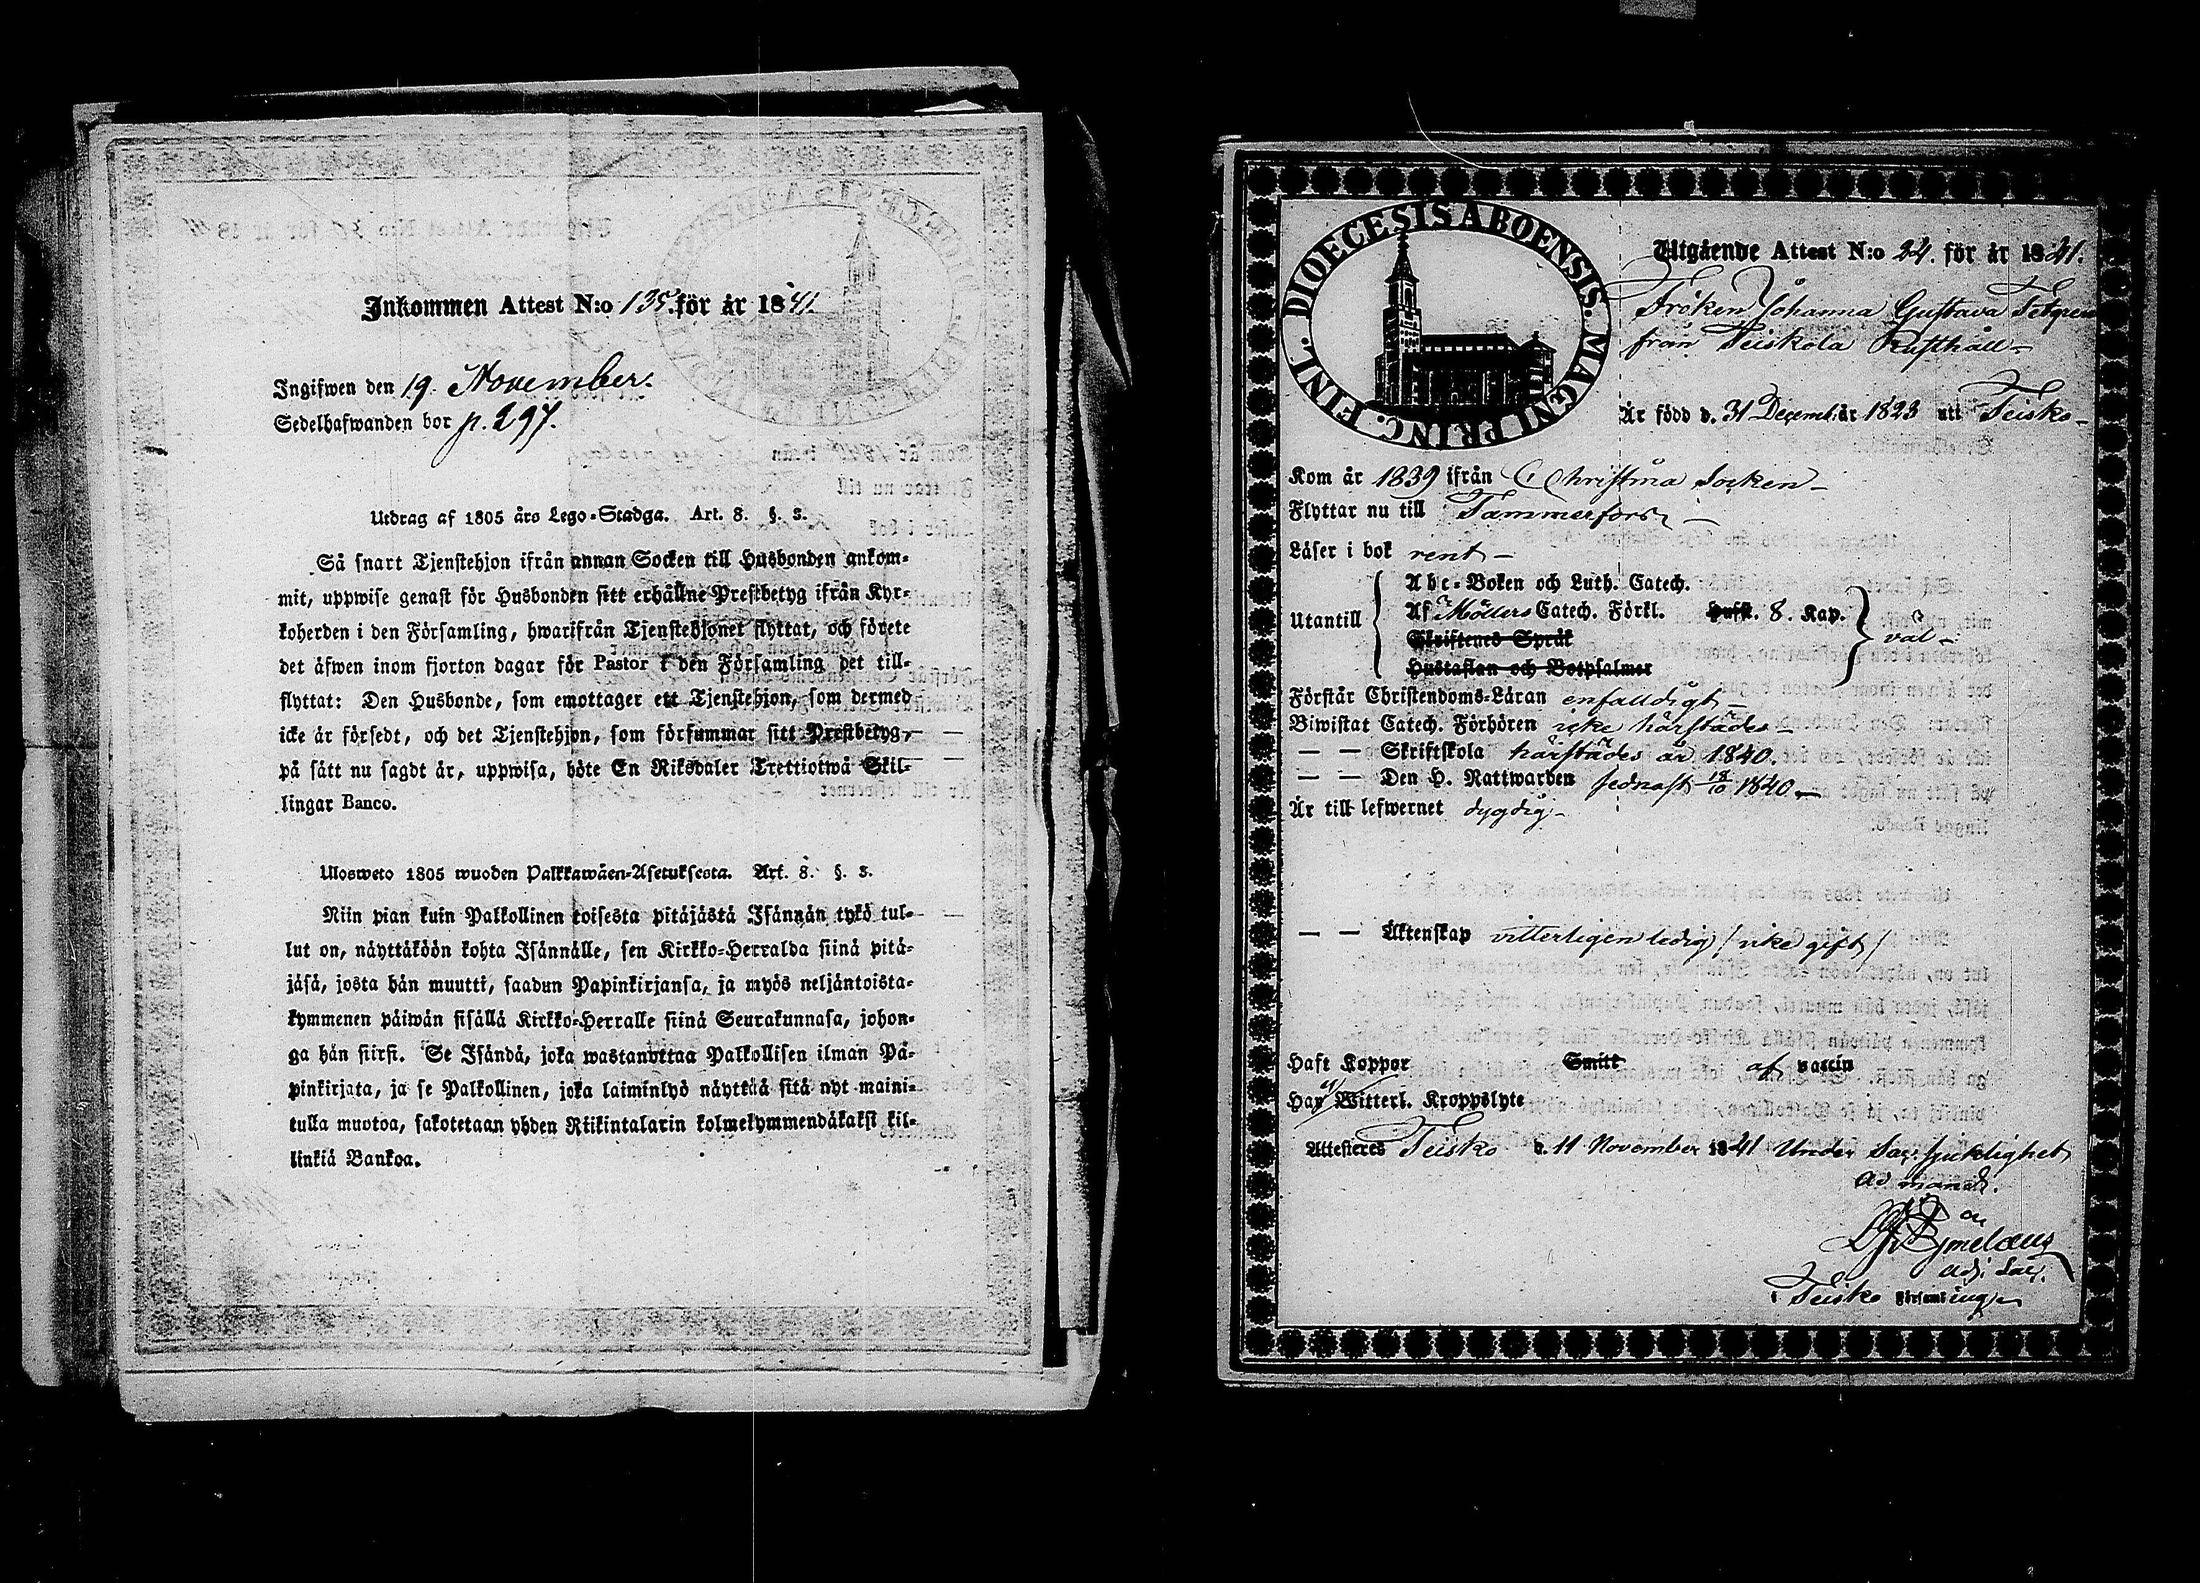 Inkommen Attest N:o 135. för år 1841.
Ingifwen den 19. November.
Sedelhafwanden bor p. 297.
Utdrag af 1805 års Lego-Stadga. Art. 8. §. 3.
Så snart Tjenstehjon ifrån annan Socken till Husbonden ankom-
mit, uppwise genast för Husbonden sitt erhållne Prestbetyg ifrån Kyr-
koherden i den Församling, hwarifrån Tjenstehjonet flyttat, och förete
det äfwen inom fjorton dagar för Pastor i den Församling det till-
flyttat: Den Husbonde, som emottager ett Tjenstehjon, som dermed
icke är försedt, och det Tjenstehjon, som försummar sitt Prestbetyg,
på sätt nu sagdt är, uppwisa, böte En Riksdaler Trettiotwå Skil-
lingar Banco.
Ulosweto 1805 wuoden Palkkawäen-Asetuksesta. Art. 8. §. 3.
Niin pian kuin Palkollinen toisesta pitäjästä Isännän tykö tul-
lut on, näyttäköön kohta Isännälle, sen Kirkko-Herralda siinä pitä-
jäsä, josta hän muutti, saadun Papinkirjansa, ja myös neljäntoista-
kymmenen päiwän sisällä Kirkko-Herralle siinä Seurakunnasa, johon-
ga hän siirsi. Se Isändä, joka wastanottaa Palkollisen ilman Pa-
pinkirjata, ja se Palkollinen, joka laiminlyö näyttää sitä nyt maini-
tulla muotoa, sakotetaan yhden Riikintalarin kolmekymmendäkaksi kil-
linkiä Bankoa.
DIOECESIS ABOENSIS. MAGNI PRINC. FINL.
Utgående Attest N:o 24. för år 1841.
Fröken Johanna Gustava
från Teiskola Rusthåll
Är född d. 31 Decemb. år 1823 uti Teisko
Kom år 1839 ifrån Christina Socken
Flyttar nu till Tammerfors
Läser i bok rent
Abc-Boken och Luth. Catech.
Utantill Af Möllers Catech. Förkl. Huf st. 8. Kap. väl
Skriftenes Språk
Hustaflan och Botpsalmer
Förstår Christendoms-Läran enfalldigt
Biwistat Catech. Förhören icke härstädes
— — Skriftskola härstädes år 1840.
— — Den H. Nattwarden sednast 18/10 1840.
Är till lefwernet dygdig
— — Äktenskap vitterligen ledig / icke gift /
Haft Koppor Smitt af vaccin
Har ej Witterl. Kroppslyte
Attesteres Teisko d. 11 November 1841 Under Sac: sjuklighet
ad mand.
Adj. Sac.
i Teisko Församlingen